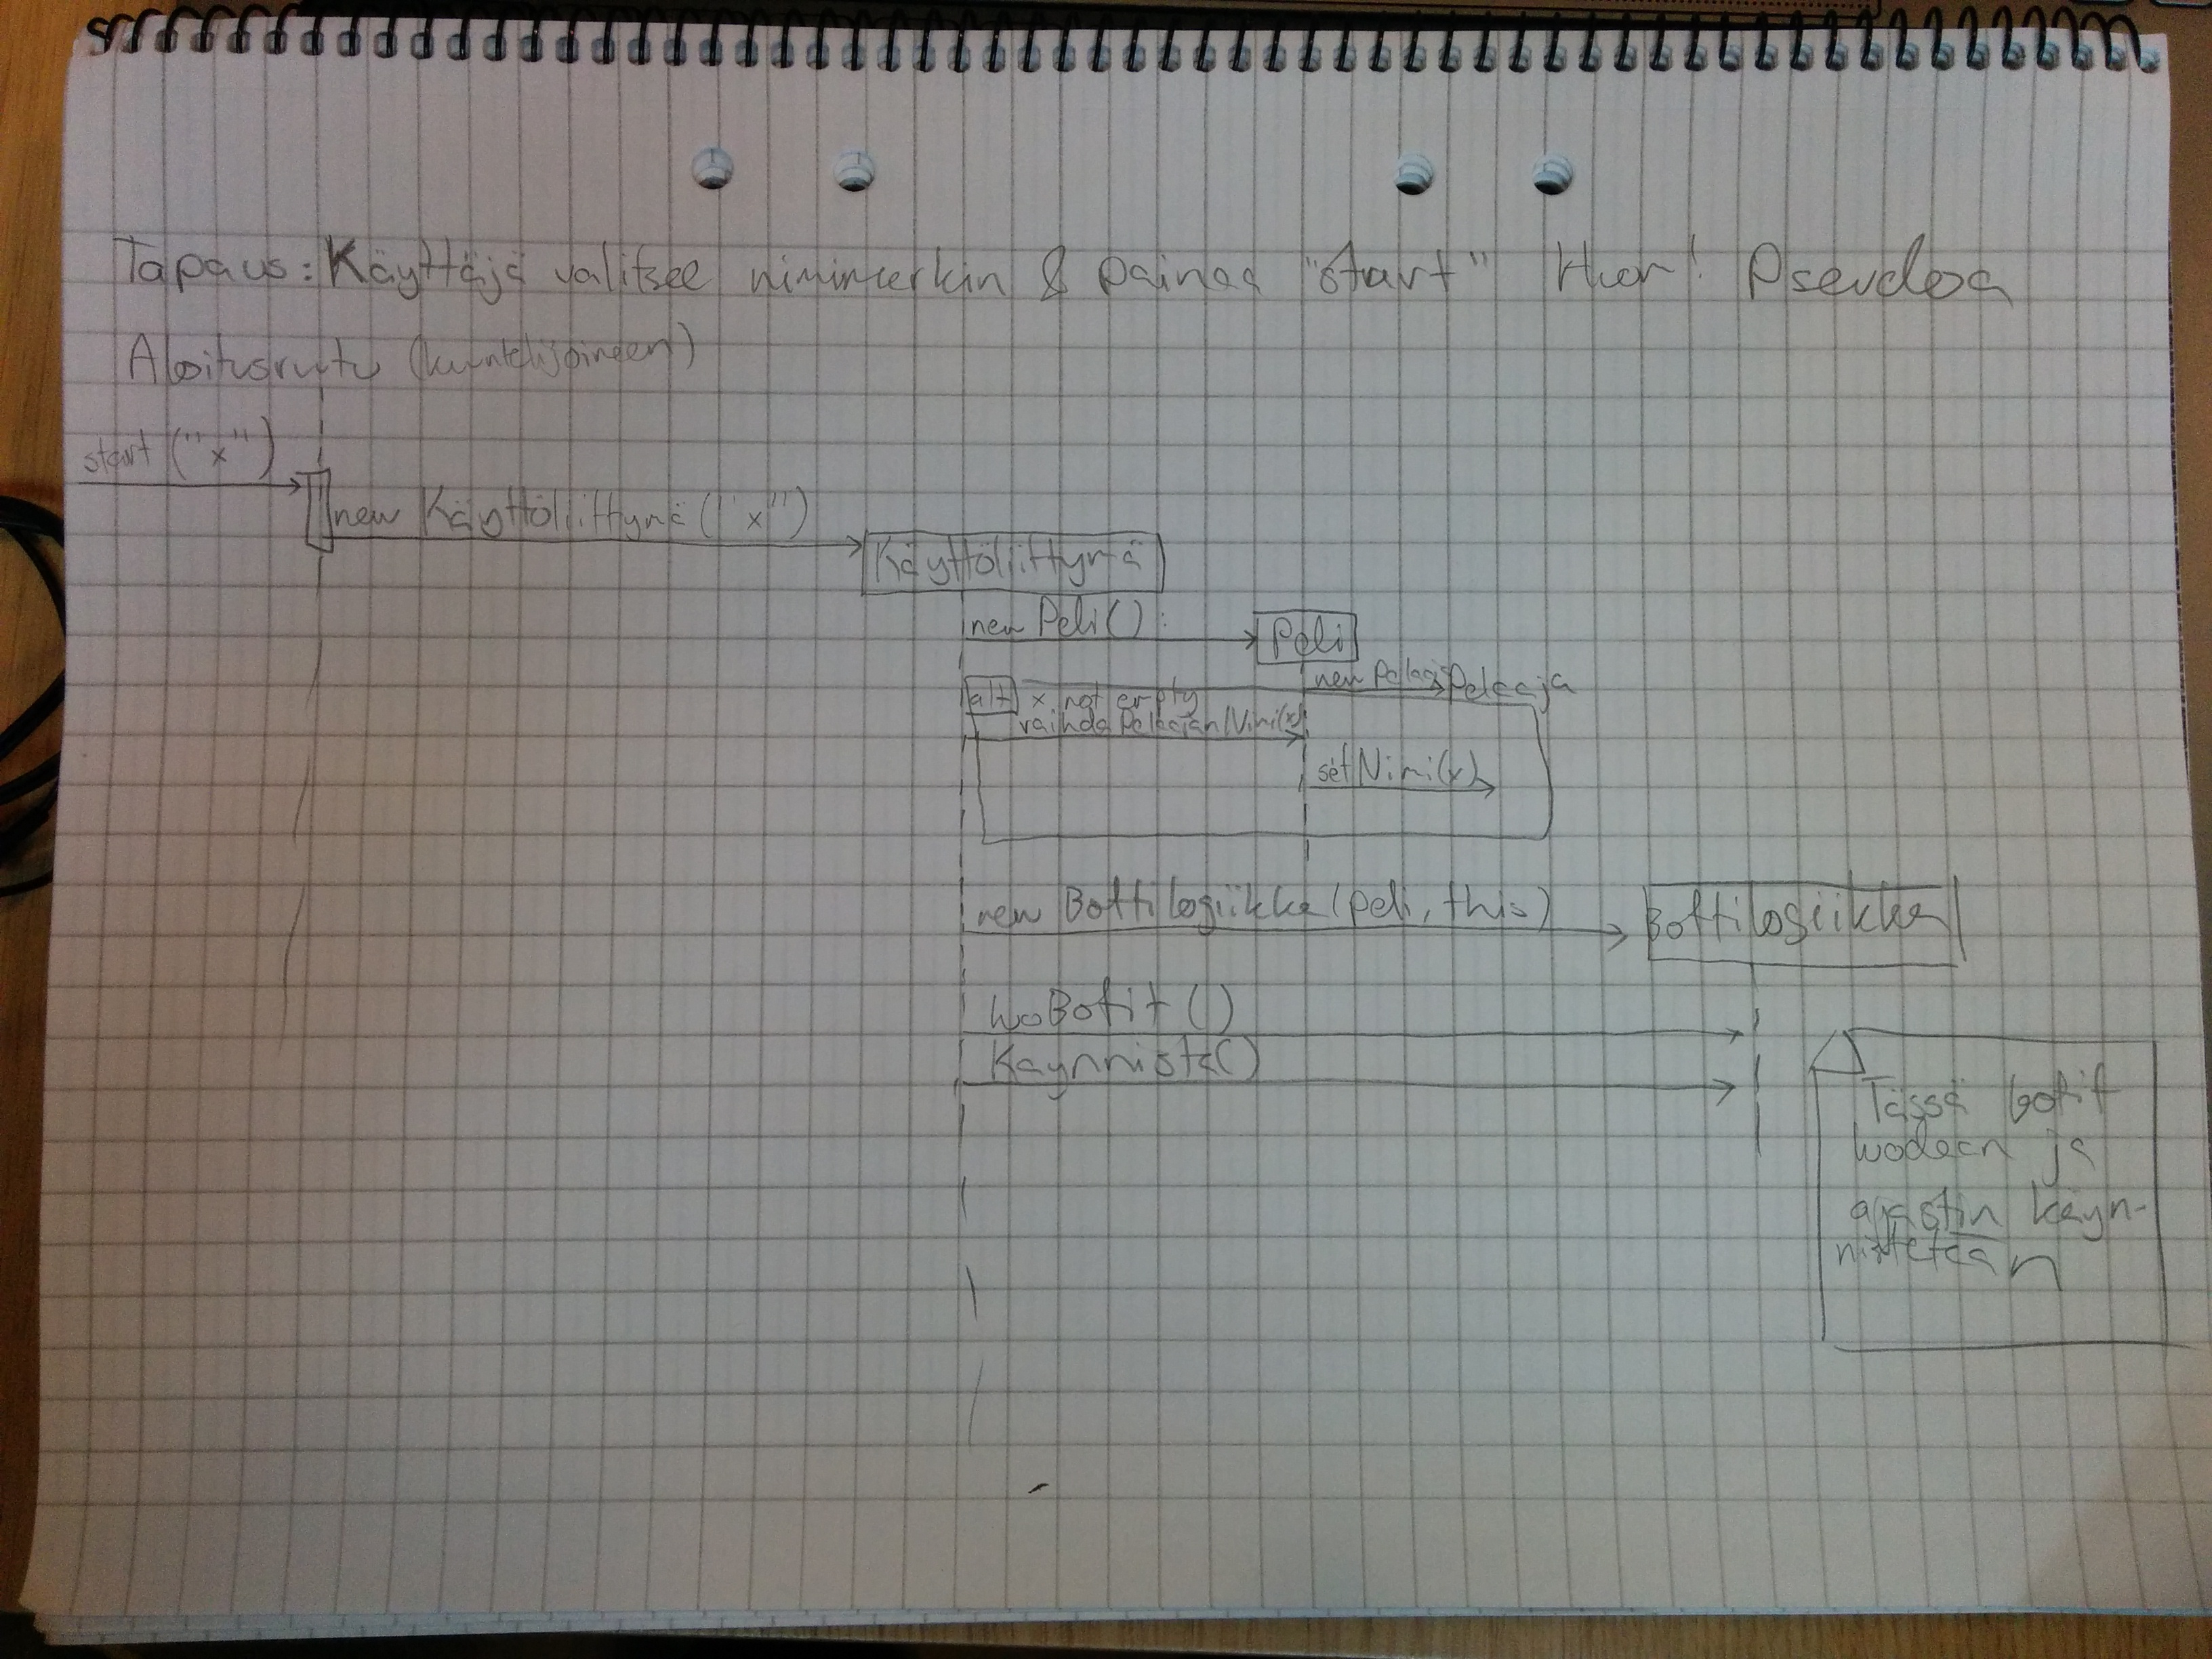 Tapaus: Käyttäjä valitsee nimimerkin & painaa "start" Huom! Pseudoa
Aloitusruutu (kuuntelijoineen)
start ("x")
new Käyttöliittymä ("x")
Käyttöliittymä
new Peli():
Peli
new Pelaaja
Pelaaja
alt x not empty
vaihdaPelaajanNimi(x)
setNimi(x)
new Bottilogiikka(peli, this)
Bottilogiikka
luoBotit ()
Kaynnista()
Tässä botit
luodaan ja
ajastin käyn-
nistetään